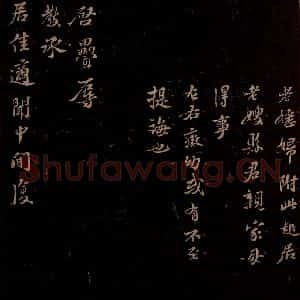 老嫂婦附此起居
老嫂縣君親家母
得事
左右煎勿或有不至
提誨也
啓疊辱
教承
居佳適閒中
Shufawang.CN